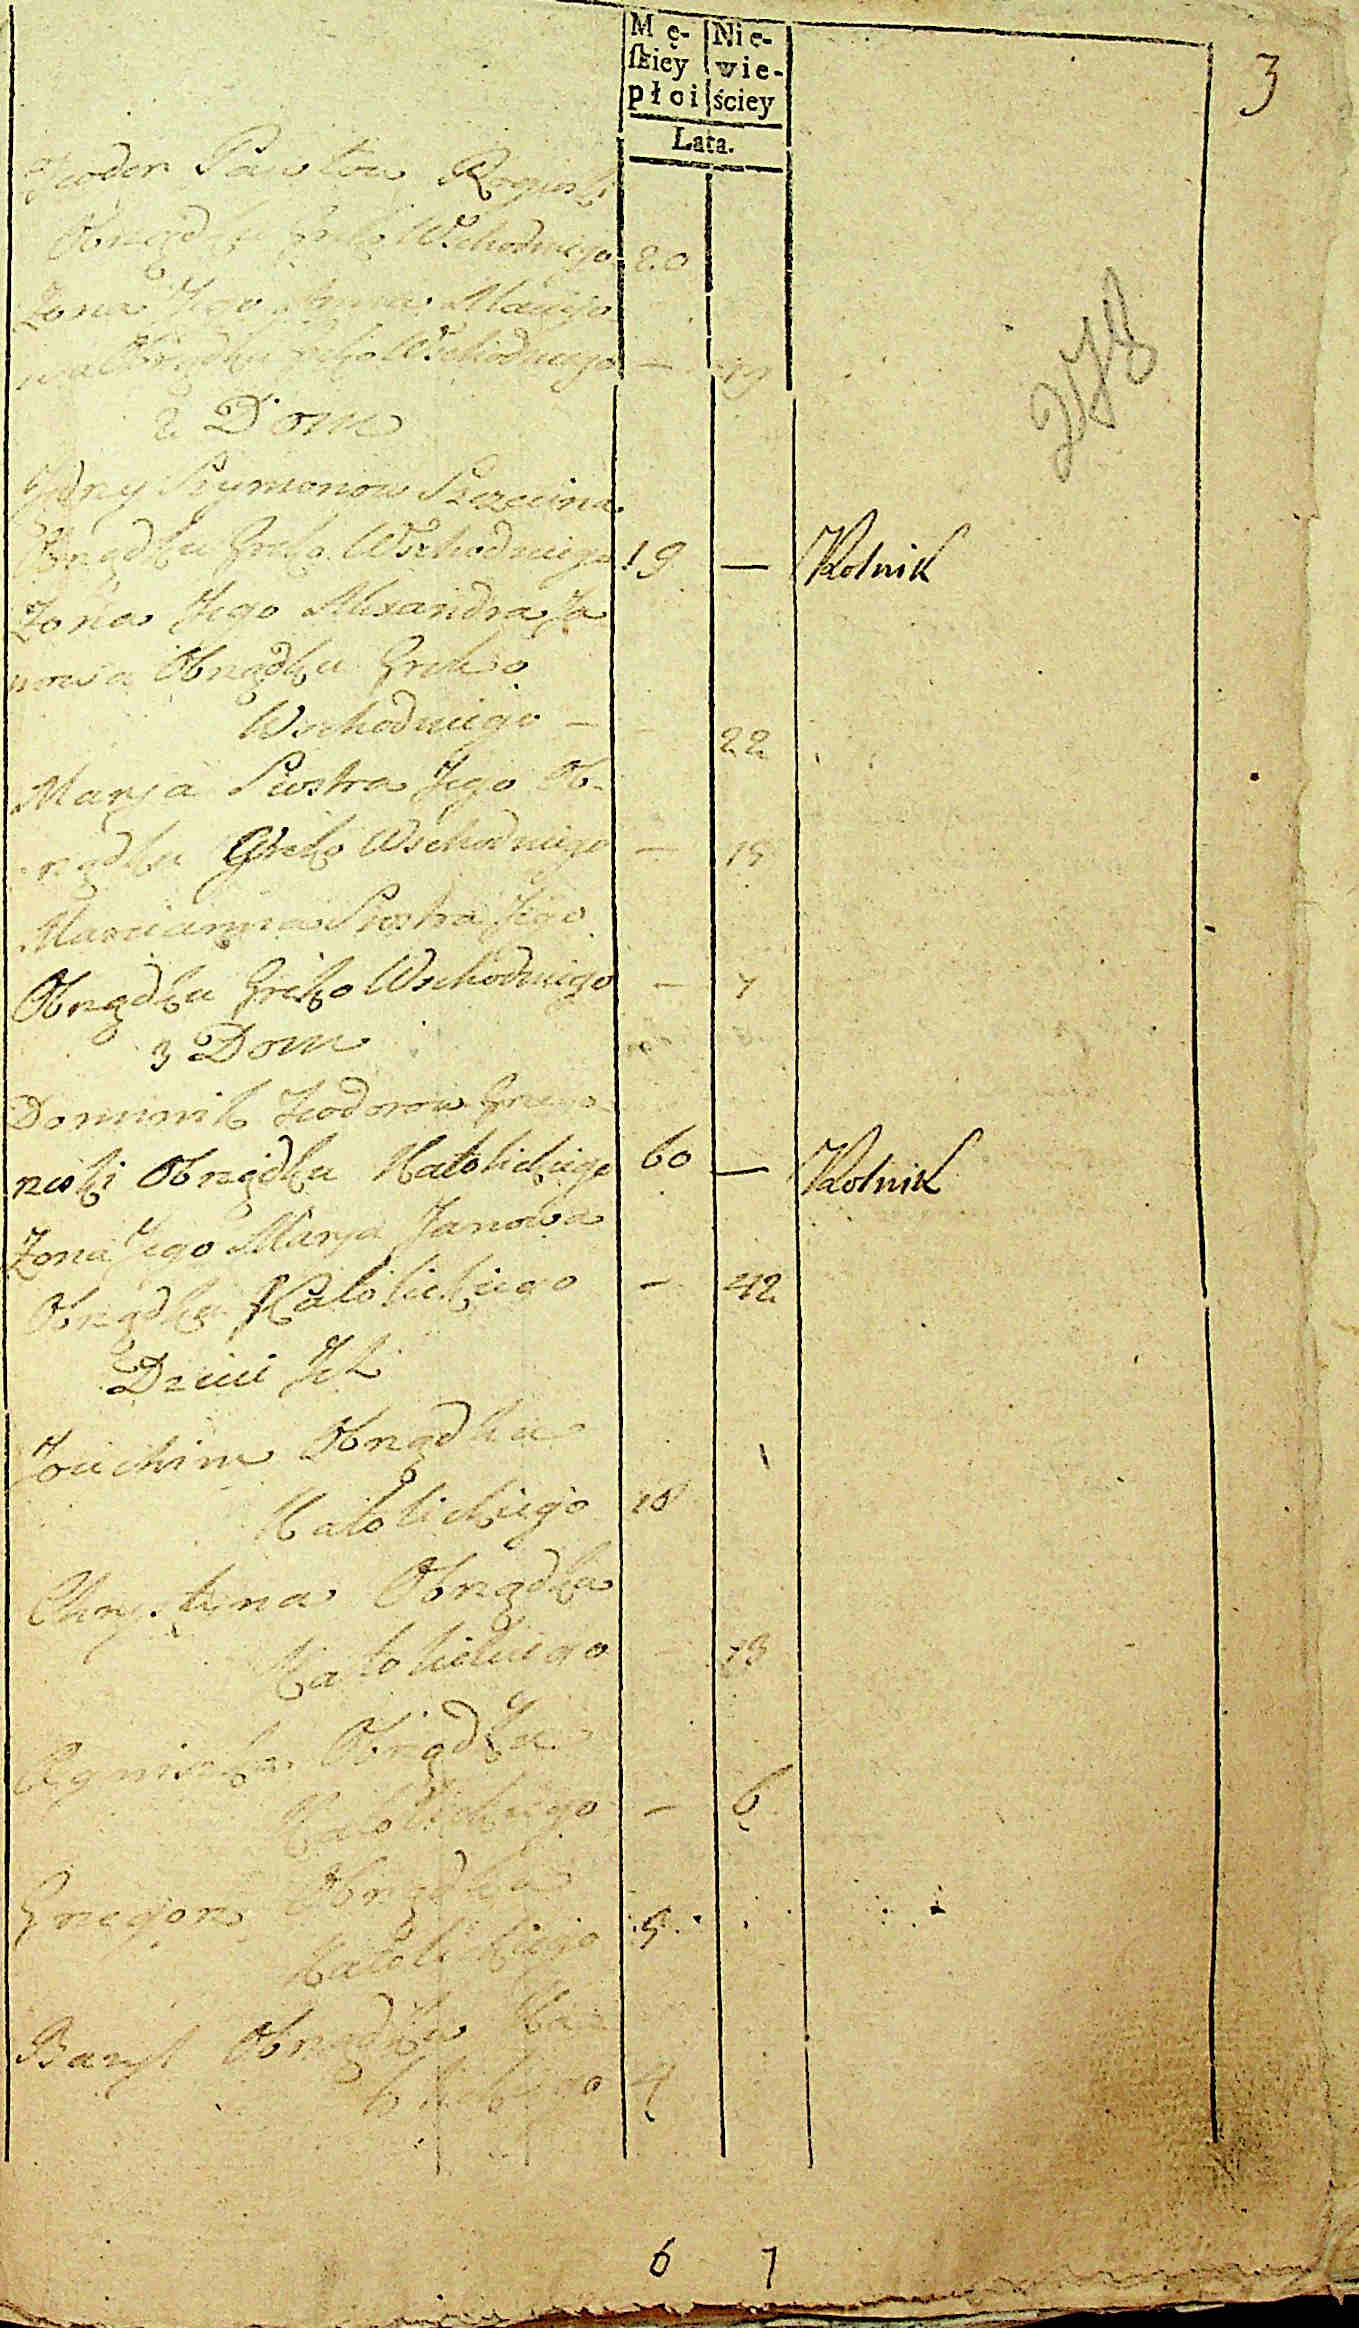 Mę- Nie-
ſkiey wie-
płci ściey
Lata.
3
278
Teodor Pawłow Roguski
Obrządku Greko Wschodniego 20
Zona Jego Anna Maciyo
wa Obrządku Greko Wschodniego — 19
2 Dom
Jędrzy Szymonow
Obrządku Greko Wschodniego 19 — Rolnik
Zona Jego Alexandra Ja
nowa Obrządku Greko
Wschodniego — 22
Marja Siostra Jego Ob-
rządku Greko Wschodniego — 15
Marcianna Siostra Jego
Obrządku Greko Wschodniego — 7
3 Dom
Dominik Teodorow Grego
reski Obrządku Katolickiego 60 — Rolnik
Zona Jego Marja Janowa
Obrządku Katolickiego — 42
Dzieci Ich
Joachim Obrządku
Katolickiego 18
Chrystyna Obrządku
Katolickiego — 13
Agniszka Obrządku
Katolickiego — 6
Gregory Obrządku
Katolickiego 5
Bazyl Obrządku Ka
tolickiego 4
6 7